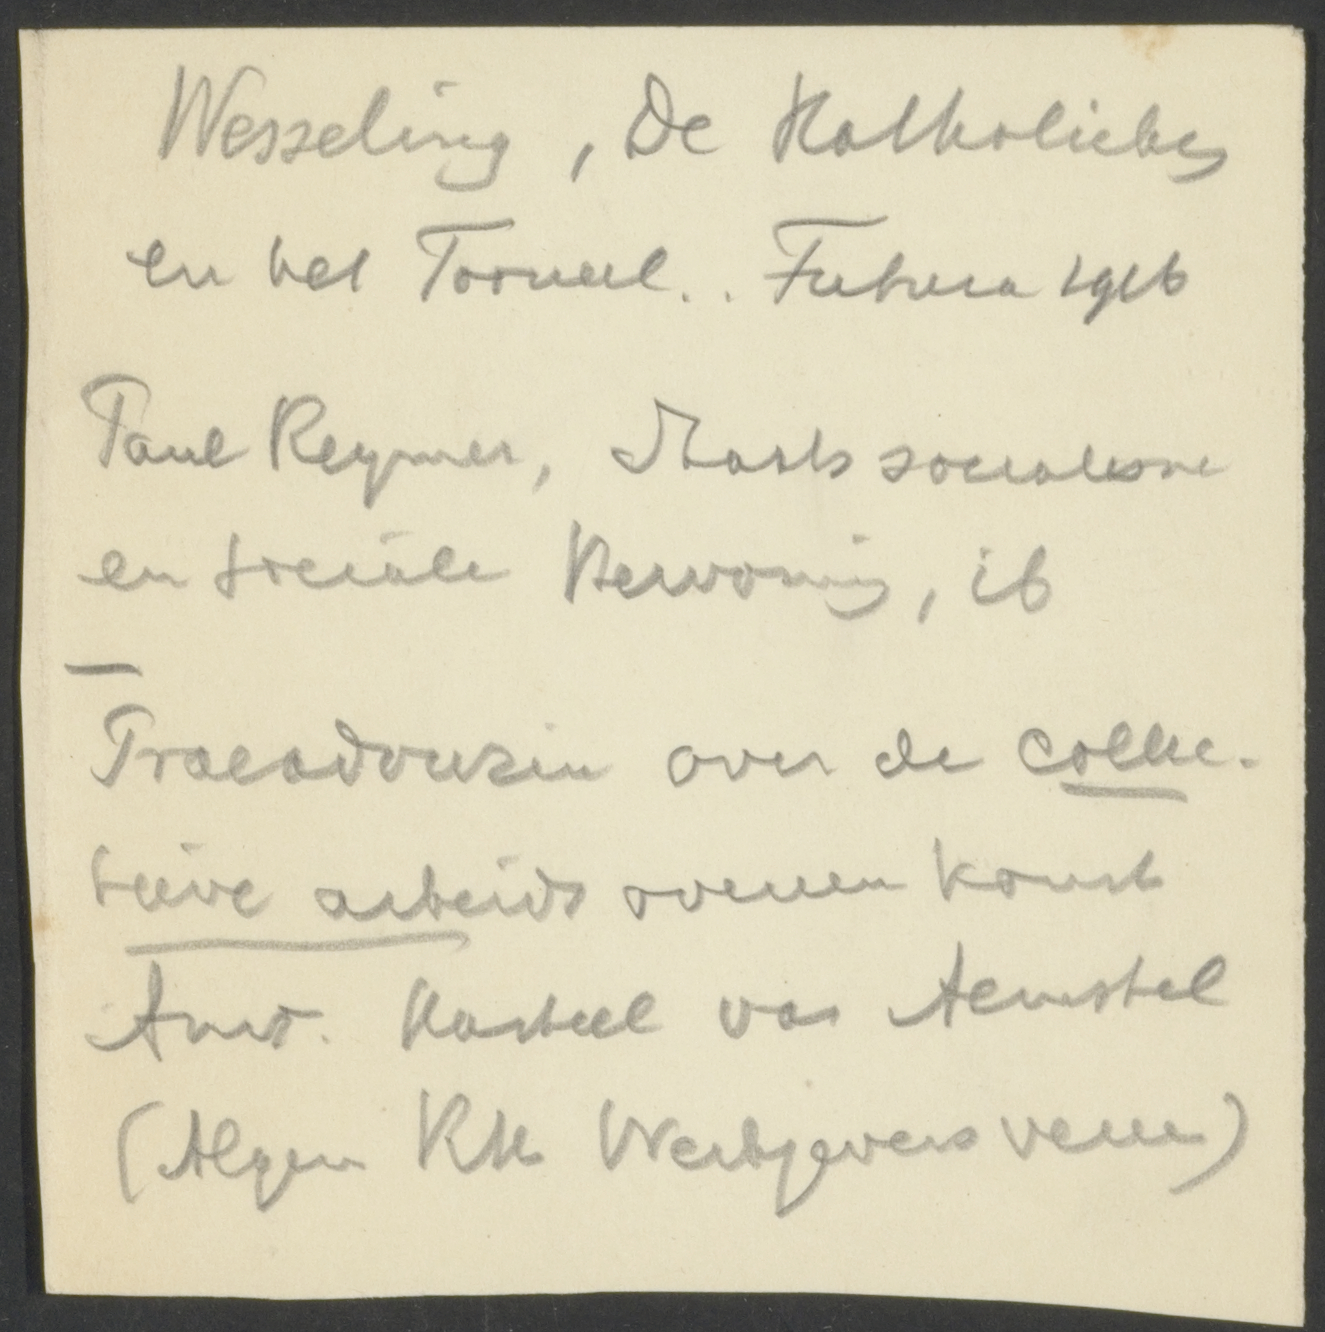 Wesseling, De Katholieken
en het Tooneel.. Futura 1916
Paul Reymer, Staatssocialisme
en sociale Hervorming, ib
—
Praeadviezen over de collec-
tieve arbeids overeen komst
Amst. Kasteel van Aemstel
(Algem RK Werkgevers veren)